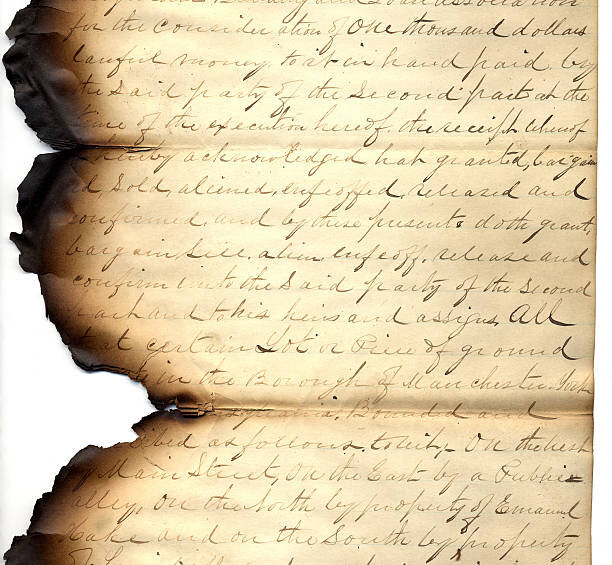 Building and Loan association
for the consideration of One thousand dollars
lawful money, to it in hand paid by
the Said party of the Second part at the
time of the execution hereof, the receipt whereof
hereby acknowledged hath granted, bargain
ed Sold, aliened, enfeoffed, released and
confirmed, and by these presents doth grant,
bargain, Sell, alien, enfeoff, release and
confirm unto the Said party of the Second
part and to his heirs and assigns, All
that certain Lot or Piece of ground
in the Borough of Manchester, York
sylvania, Bounded and
ribed as follows, towit,- On the West
by Main Street, On the East by a Public
alley, On the North by property of Emanuel
Hake and on the South by property